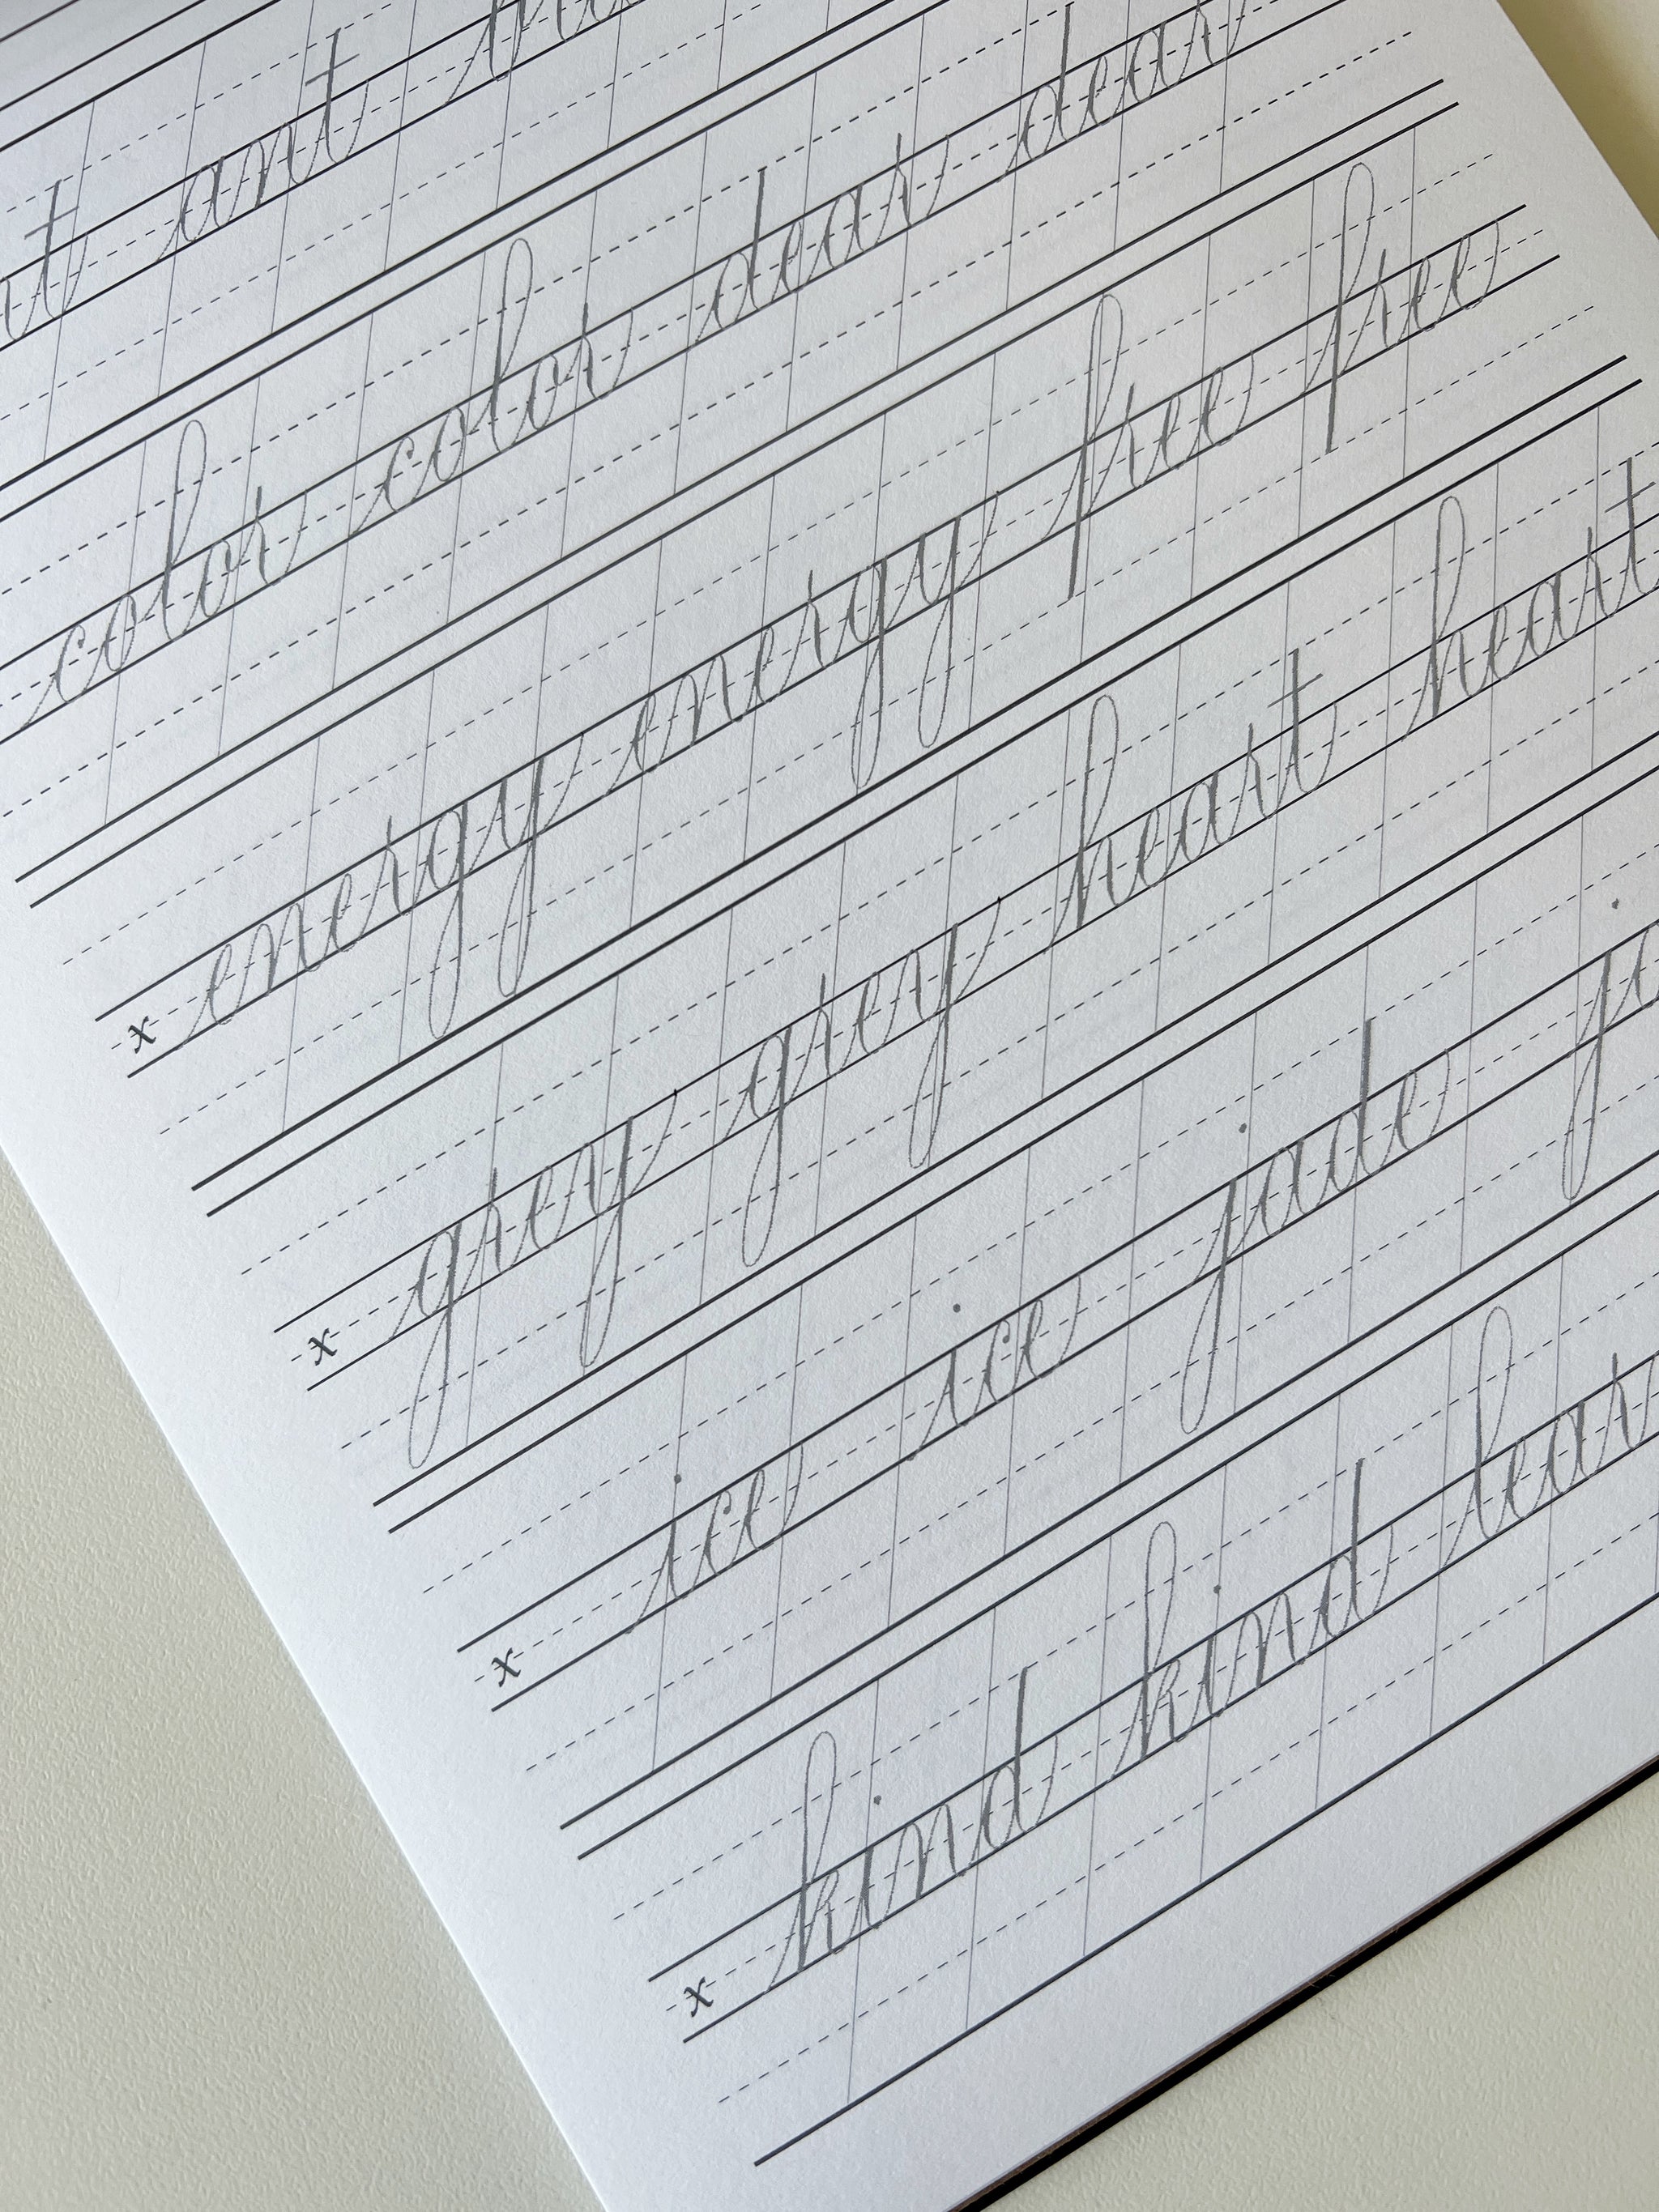 ant
color color dear dear
x energy energy free free
x grey grey heart heart
x ice ice jade
x kind kind